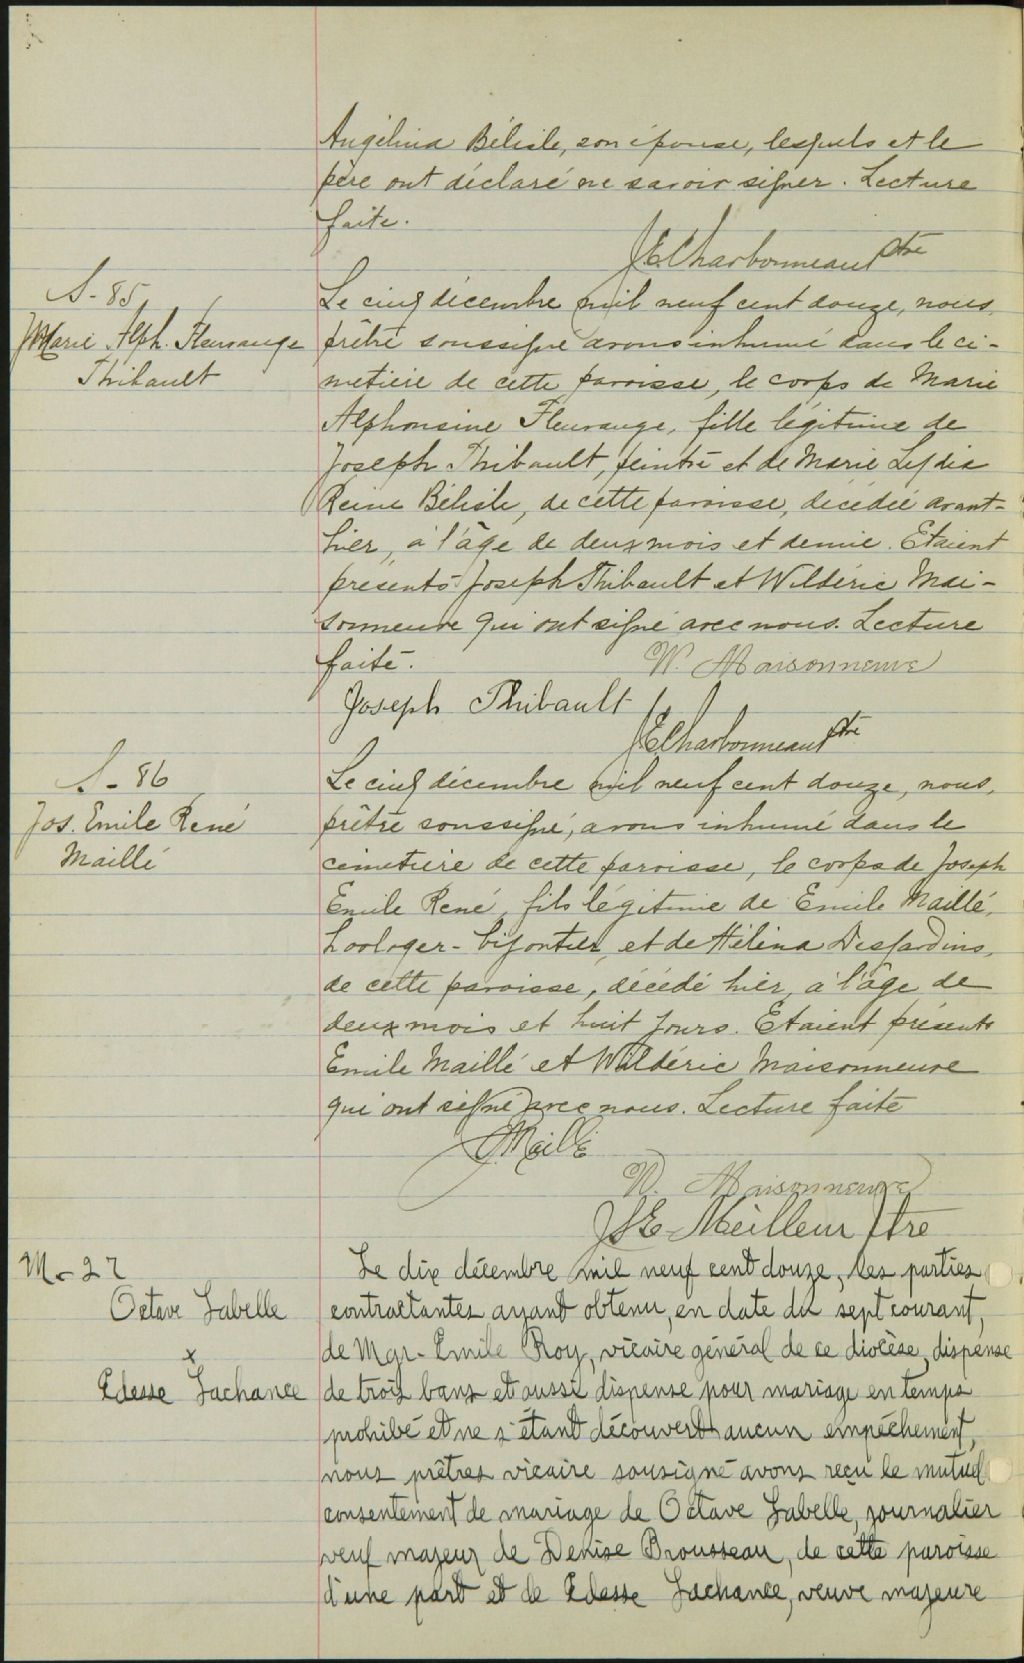 Angélina Bélisle, son épouse, lesquels et le
père ont déclaré ne savoir signer. Lecture
faite.
J.E. Charbonneau ptre
S-85
Marie Alph. Fleurange
Thibault
Le cinq décembre mil neuf cent douze, nous,
prêtre soussigné avons inhumé dans le ci-
metière de cette paroisse, le corps de Marie
Alphonsine Fleurange, fille légitime de
Joseph Thibault, peintre et de Marie Lydia
Reine Bélisle, de cette paroisse, décédée avant-
hier, à l'âge de deux mois et demie. Etaient
présents Joseph Thibault et Wildéric Mai-
sonneuve qui ont signé avec nous. Lecture
faite.
W. Maisonneuve
Joseph Thibault
J.E. Charbonneau ptre
S-86
Jos. Emile René
Maillé
Le cinq décembre mil neuf cent douze, nous,
prêtre soussigné, avons inhumé dans le
cimetière de cette paroisse, le corps de Joseph
Emile René, fils légitime de Emile Maillé,
horloger-bijoutier, et de Hélina Desjardins,
de cette paroisse, décédé hier, à l'âge de
deux mois et huit jours. Etaient présents
Emile Maillé et Wildéric Maisonneuve
qui ont signé avec nous. Lecture faite
E. Maillé
W. Maisonneuve
J.E. Meilleur ptre
M-27
Octave Labelle
x
Edesse Lachance
Le dix décembre mil neuf cent douze, les parties
contractantes ayant obtenu, en date du sept courant,
de Mgr-Emile Roy, vicaire général de ce diocèse, dispense
de trois bans et aussi dispense pour mariage en temps
prohibé et ne s'étant découvert aucun empêchement,
nous prêtres vicaire sousigné avons reçu le mutuel
consentement de mariage de Octave Labelle, journalier
veuf majeur de Denise Brousseau, de cette paroisse
d'une part et de Edesse Lachance, veuve majeure